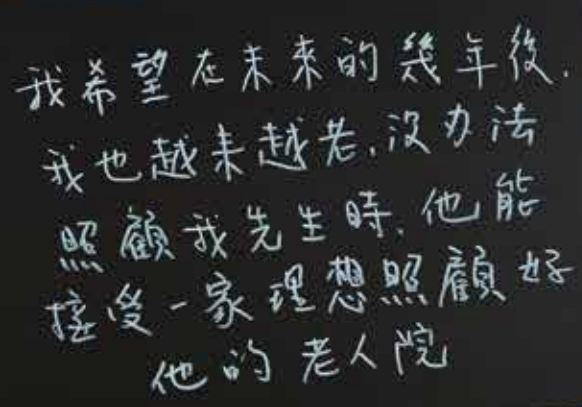 我希望在未來的幾年後,
我也越来越老,沒办法
照顧我先生時,他能
接受一家理想照顧好
他的老人院